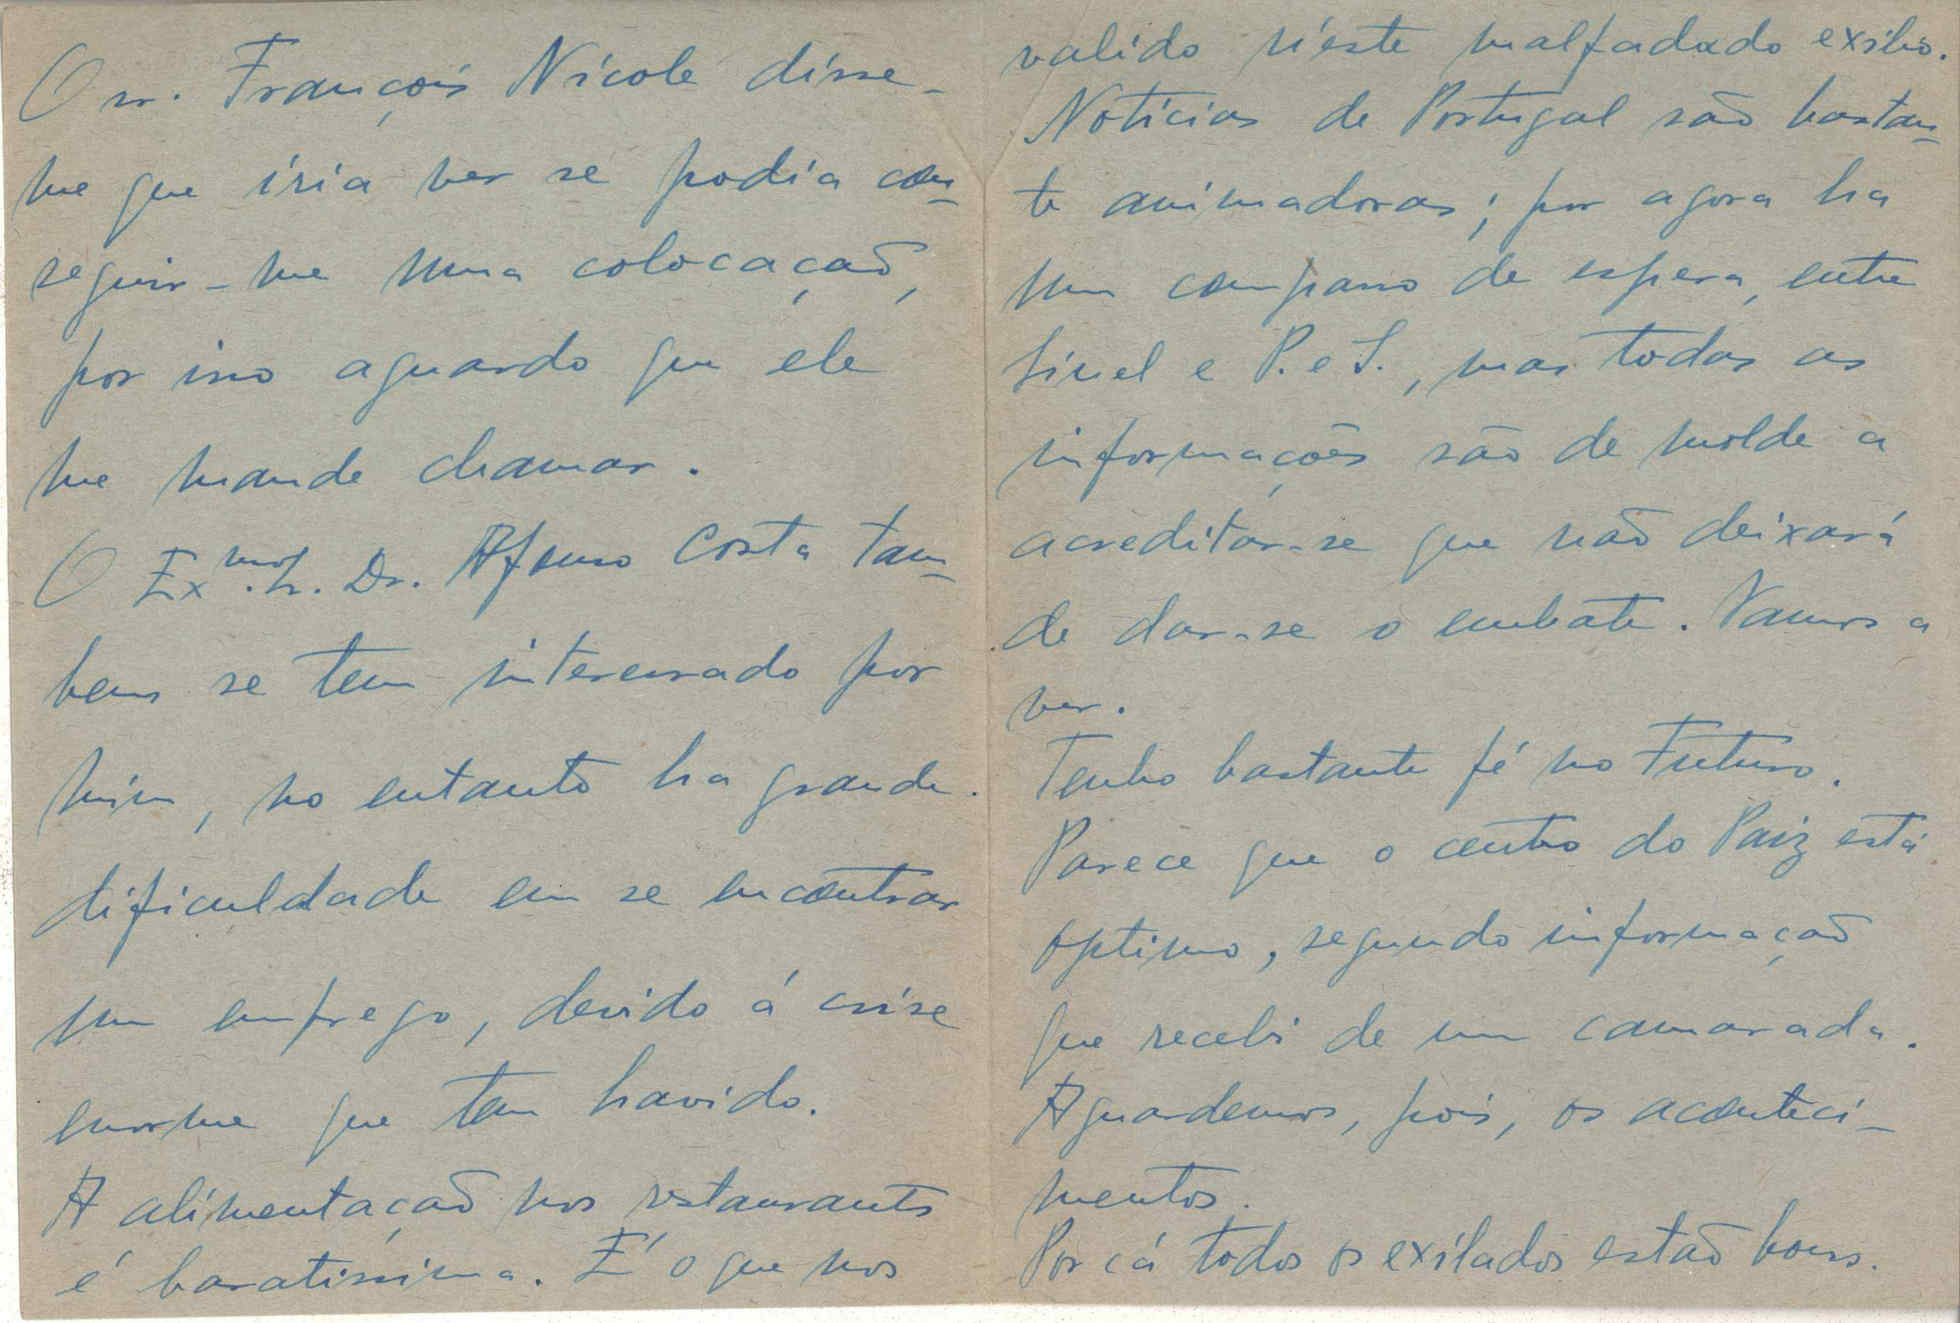 O sr. François Nicole disse-
me que iria ver se podia con-
seguir-me uma colocação,
por isso aguardo que ele
me mande chamar.
O Exmo. Sr. Dr. Afonso Costa tam-
bem se tem interessado por
mim, no entanto ha grande
dificuldade em se encontrar
um emprego, devido á crise
enorme que tem havido.
A alimentação nos restaurants
é baratissima. É o que nos
valido n'este malfadado exilio.
Noticias de Portugal são bastan-
te animadoras; por agora ha
um compasso de espera, entre
Sinel e P. e S., mas todas as
informações são de molde a
acreditar-se que não deixará
de dar-se o embate. Vamos a
ver.
Tenho bastante fé no Futuro.
Parece que o centro do Paiz está
optimo, segundo informação
que recebi de um camarada.
Aguardemos, pois, os aconteci-
mentos.
Por cá todos os exilados estão bons.